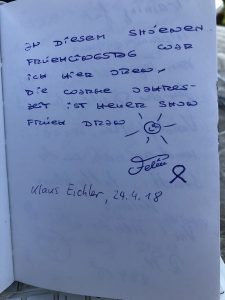 AN DIESEM SHÖENEN
FRÜEHLINGSTAG WAR
ICH HIER OBEN,
DIE WARME JAHRES-
ZEIT IST HEUER SHON
FRÜEH DRAN
Klaus Eichler, 24.4.18